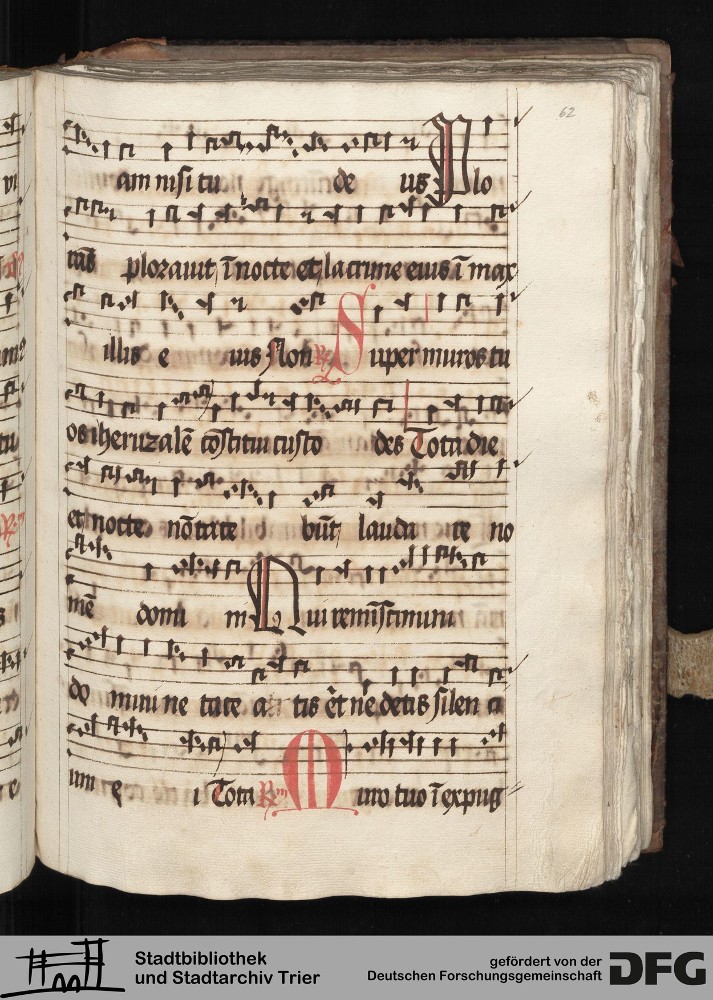 62
am nisi tu de us Plo
rās plorauit ī nocte et lacrime eius ī max
illis e ius Plon R Super muros tu
os iheruzalē cōstitui custo des Tota die
et nocte nō tace būt lauda re no
mē domi ni Qui reminiscimini
do mini ne tace a tis et ne detis silen ci
um e i Tota Rm Muro tuo īexpug
Stadtbibliothek
und Stadtarchiv Trier
gefördert von der
Deutschen Forschungsgemeinschaft
DFG